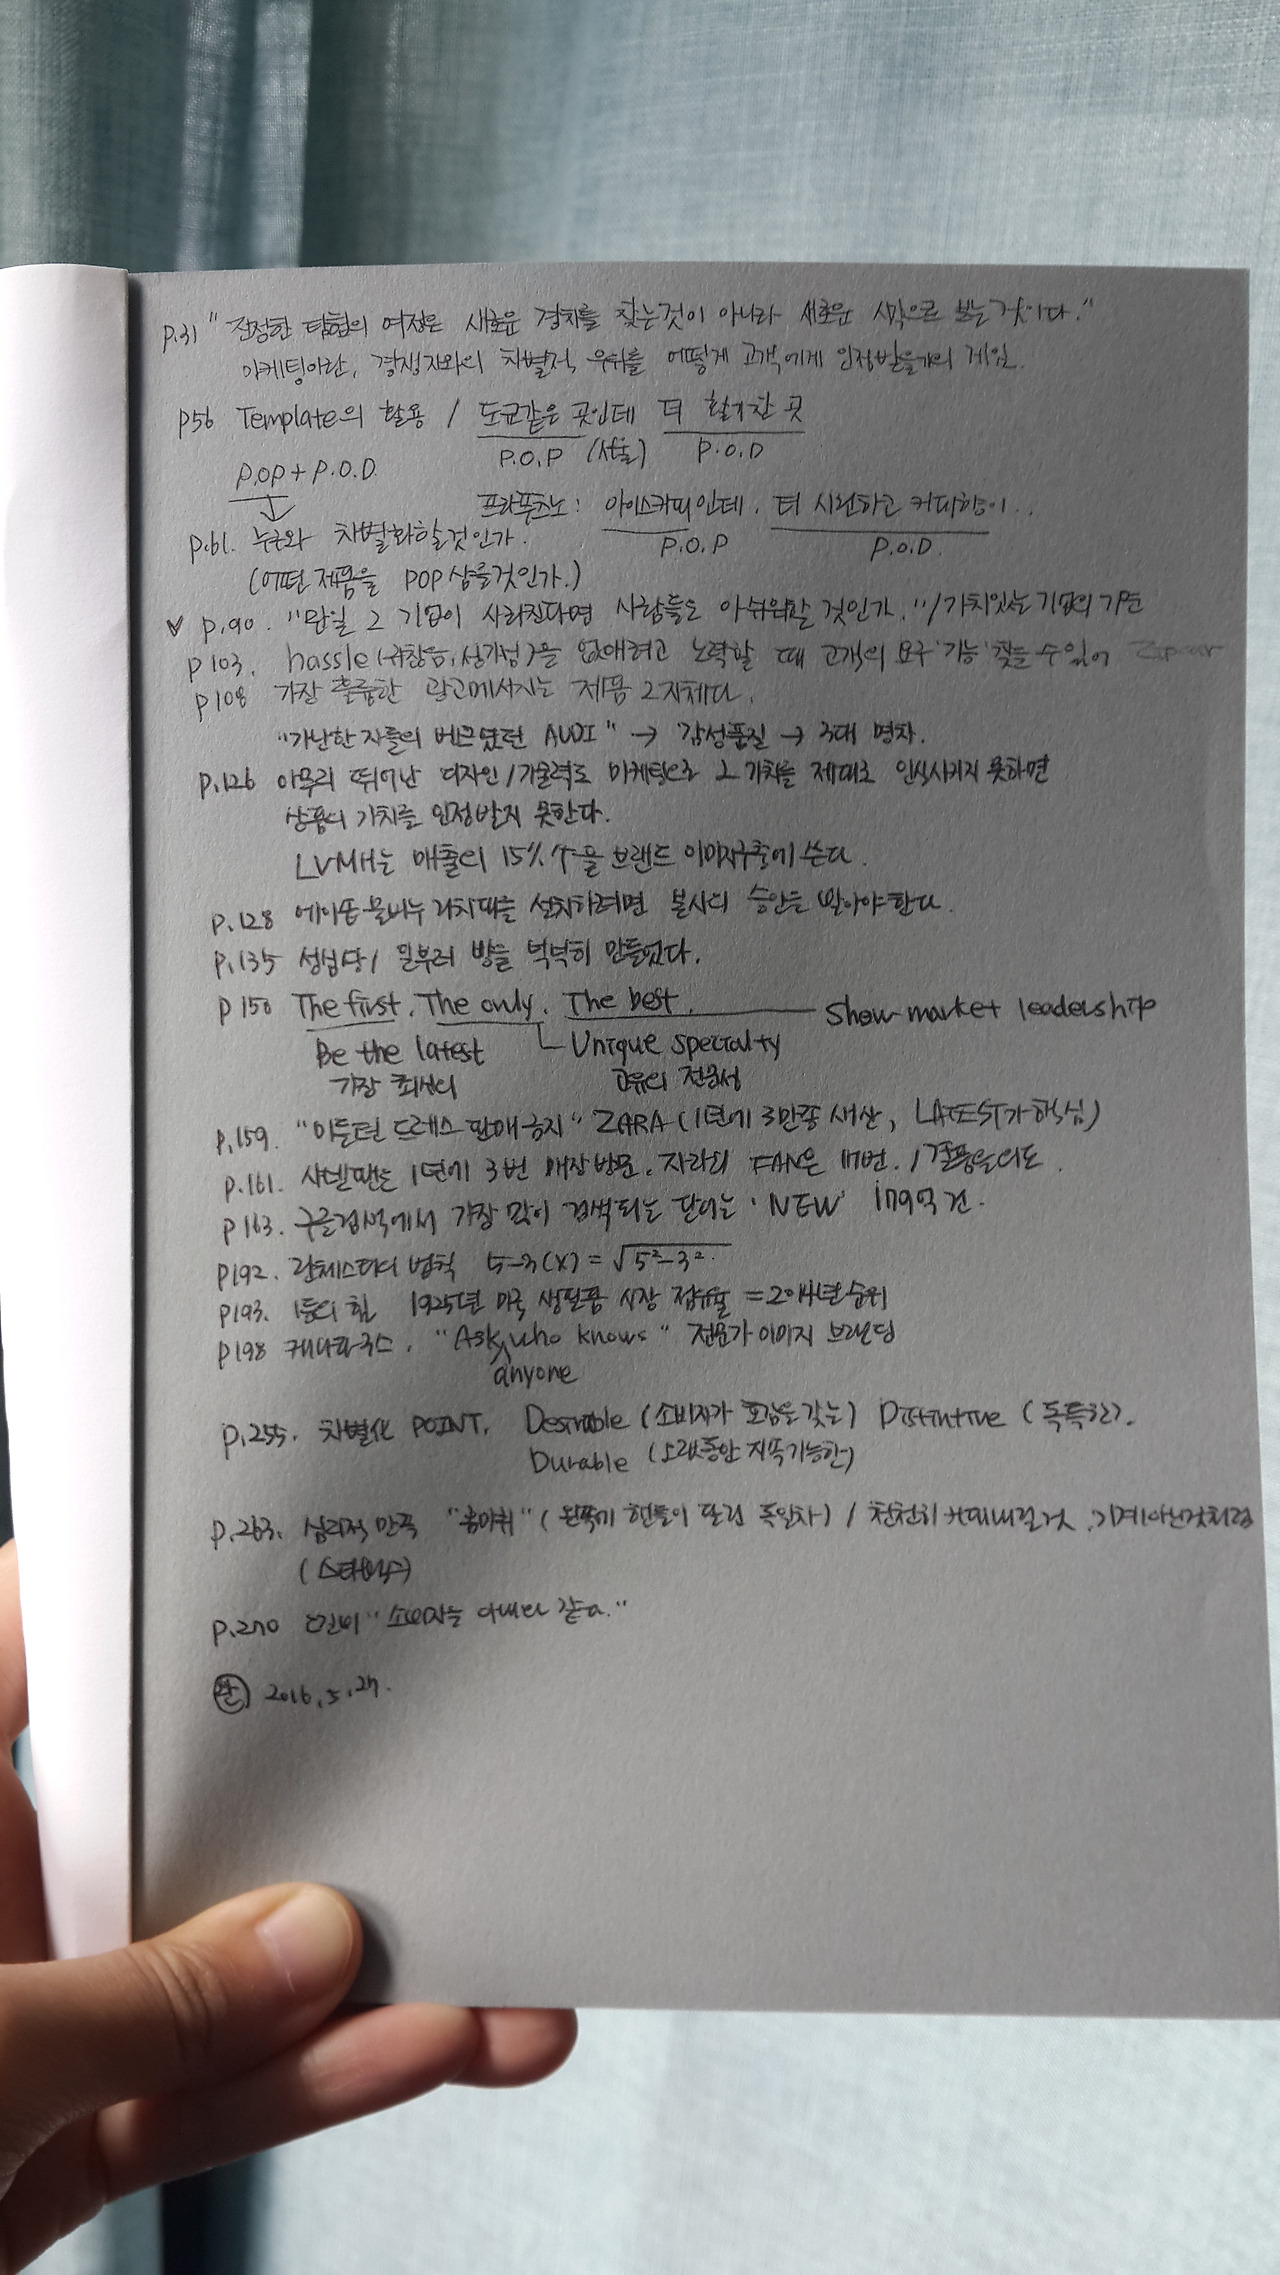 p.31 "진정한 탐험의 여정은 새로운 경치를 찾는것이 아니라 새로운 시각으로 보는 것이다."
마케팅이란, 경쟁자와의 차별적 우위를 어떻게 고객에게 인정받을까의 게임.
p56 Template의 활용 / 도쿄같은 곳인데 더 활기찬 곳
P.O.P (서울) P.O.D
P.OP + P.O.D.
프라푸치노: 아이스커피인데, 더 시원하고 커피향이..
P.O.P P.O.D.
p.61. 누구와 차별화할것인가.
(어떤 제품을 POP 삼을것인가.)
V p.90. "만일 그 기업이 사라진다면 사람들도 아쉬워할 것인가." / 가치있는 기업의 기준
p103. hassle(귀찮음, 성가심)을 없애려고 노력할 때 고객의 요구 '기능' 찾을 수 있어 Zipcar
p108 가장 훌륭한 광고메시지는 제품 그 자체다.
"가난한 자들의 벤츠였던 AUDI" → 감성품질 → 3대 명차.
p.126 아무리 뛰어난 디자인/기술력도 마케팅으로 그 가치를 제대로 인식시키지 못하면
상품의 가치를 인정받지 못한다.
LVMH는 매출의 15%↑을 브랜드 이미지구축에 쓴다.
p.128 에이솝 비누 거치대를 설치하려면 본사의 승인을 받아야한다.
p.135 성심당 / 일부러 빵을 넉넉히 만들었다.
p150 The first. The only. The best. Show market leadership
Be the latest Unique specialty
가장 최신의 고유의 전문성
p.159. "미들턴 드레스 판매금지" ZARA (1년에 3만종 생산, LATEST가 핵심)
p.161. 샤넬팬은 1년에 3번 매장방문. 자라의 FAN은 17번. / 결품을 의도.
p163. 구글검색에서 가장 많이 검색되는 단어는 'NEW' 179억 건.
p192. 란체스터의 법칙 5-3(x) = √5²-3²
p193. 1등의 힘 1925년 미국 생필품 시장 점유율 = 2014년 순위
p198 "Ask anyone who knows" 전문가 이미지 브랜딩
p.255. 차별화 POINT. Desirable (소비자가 호감을 갖는) Distintive (독특한).
Durable (오랫동안 지속가능한)
p.263. 심리적 만족 (왼쪽에 핸들이 달린 독일차) / 천천히 커피내릴것, 기계아닌것처럼
(스타벅스)
p.270 "소비자는 아내와 같다."
완 2016.5.27.